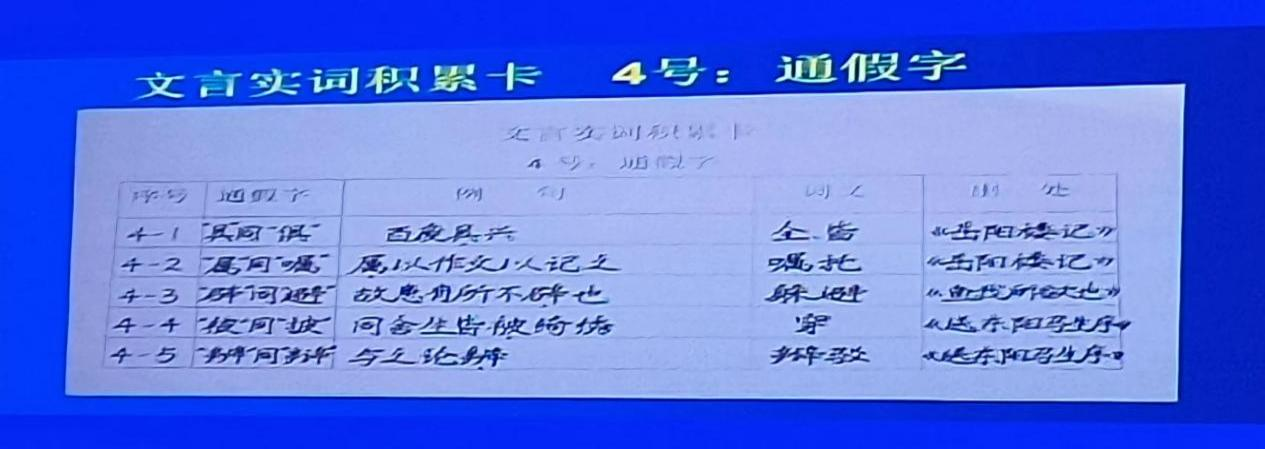 文言实词积累卡 4号：通假字
文言实词积累卡
4号：通假字
序号 通假字 例句 词义 出处
4-1 "具"同"俱" 百废具兴 全、皆 《岳阳楼记》
4-2 "属"同"嘱" 属以作文以记之 嘱托 《岳阳楼记》
4-3 "辟"同"避" 故患有所不辟也 躲避 《鱼我所欲也》
4-4 "被"同"披" 同舍生皆被绮绣 穿 《送东阳马生序》
4-5 与之论辨 辩驳 《送东阳马生序》